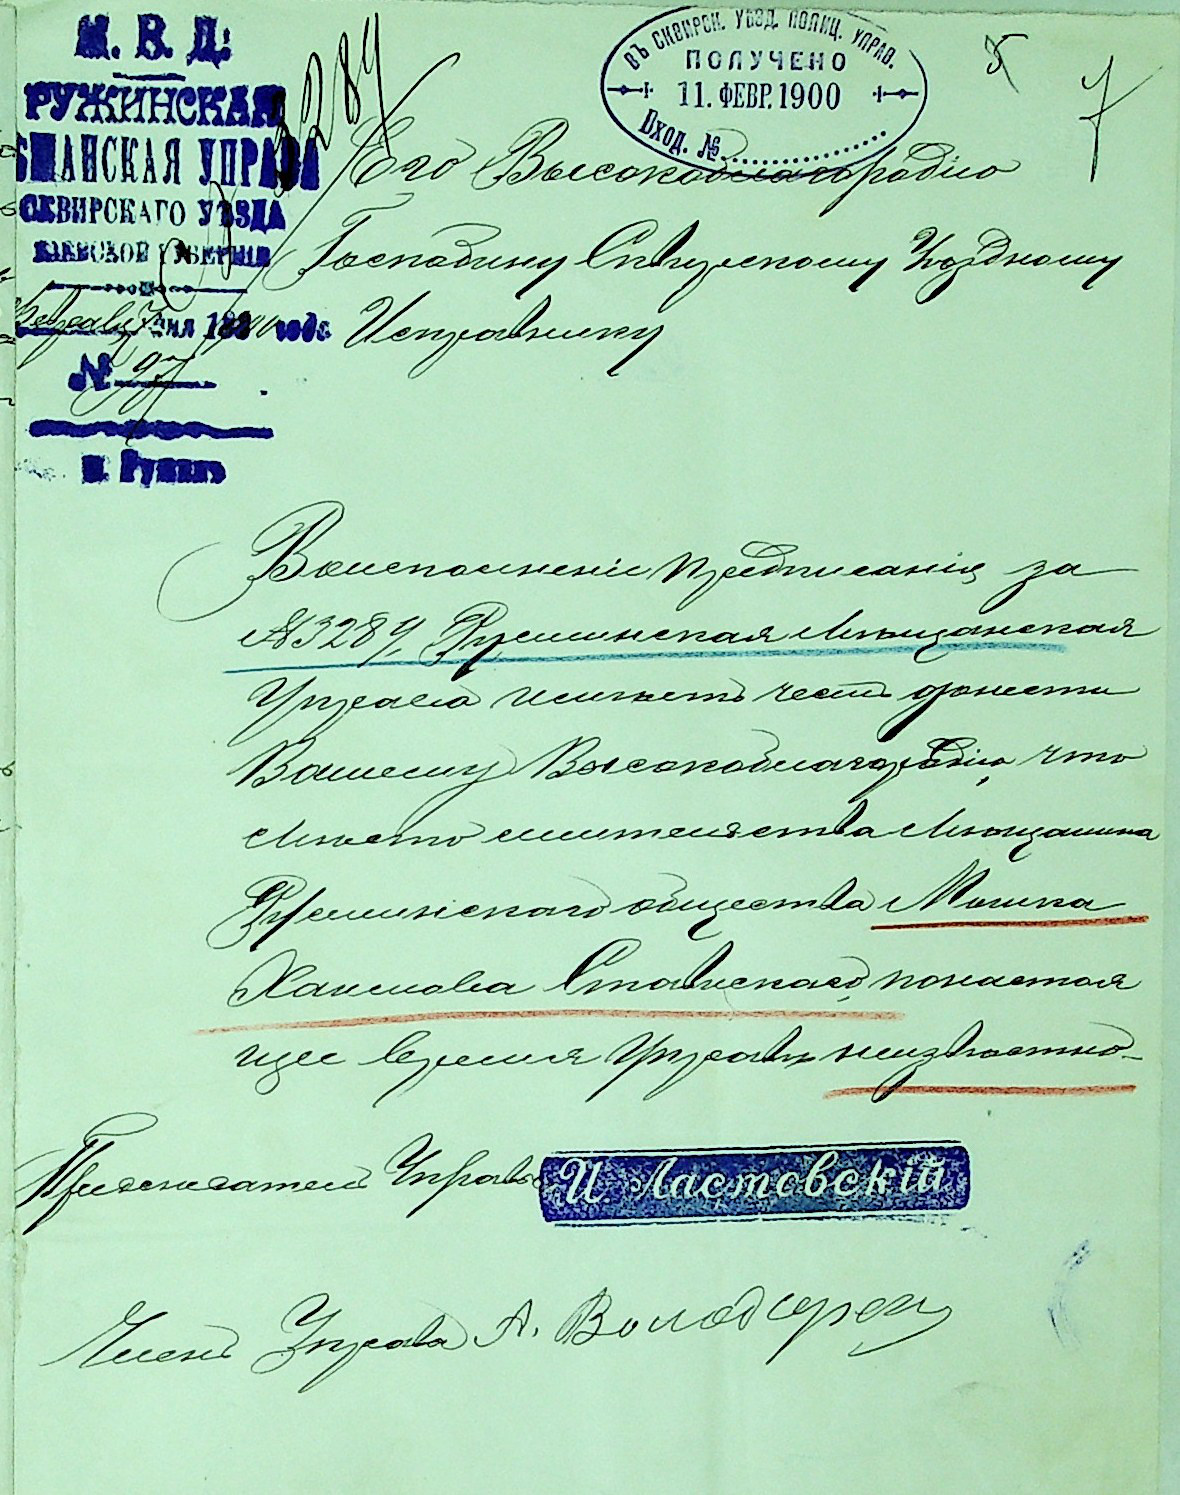 М. В. Д.
РУЖИНСКАЯ
МѢЩАНСКАЯ УПРАВА
СКВИРСКАГО УѢЗДА
КІЕВСКОЙ ГУБЕРНІИ
Февраля 7 дня 1900 года
№ 97
м. Ружинъ
3284
ВЪ СКВИРСК. УѢЗД. ПОЛИЦ. УПРАВ.
ПОЛУЧЕНО
11. ФЕВР. 1900
Вход. №
5
7
Его Высокоблагородію
Господину Сквирскому Уѣздному
Исправнику
Воисполненіи предписанія за
№ 3284, Ружинская Мѣщанская
Управа имѣетъ честь донести
Вашему Высокоблагородію, что
Мѣсто жительства Мѣщанина
Ружинскаго общества Мошка
Хаимова Ставискаго, понастоя
щее время Управѣ неизвѣстно.
Предсѣдатель Управы И. Ластовскій
Членъ Управы А.